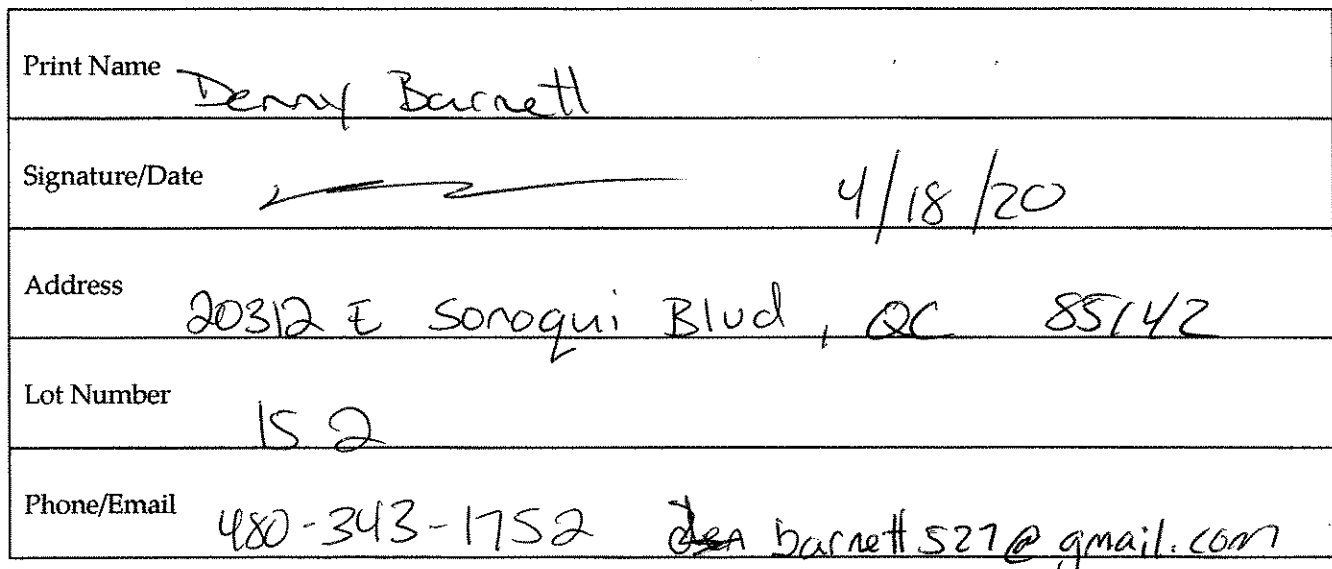 Print Name Denny Barnett
Signature/Date 4/18/20
Address 20312 E Sonoqui Blvd, QC 85142
Lot Number 152
Phone/Email 480-343-1752 den barnett527@gmail.com